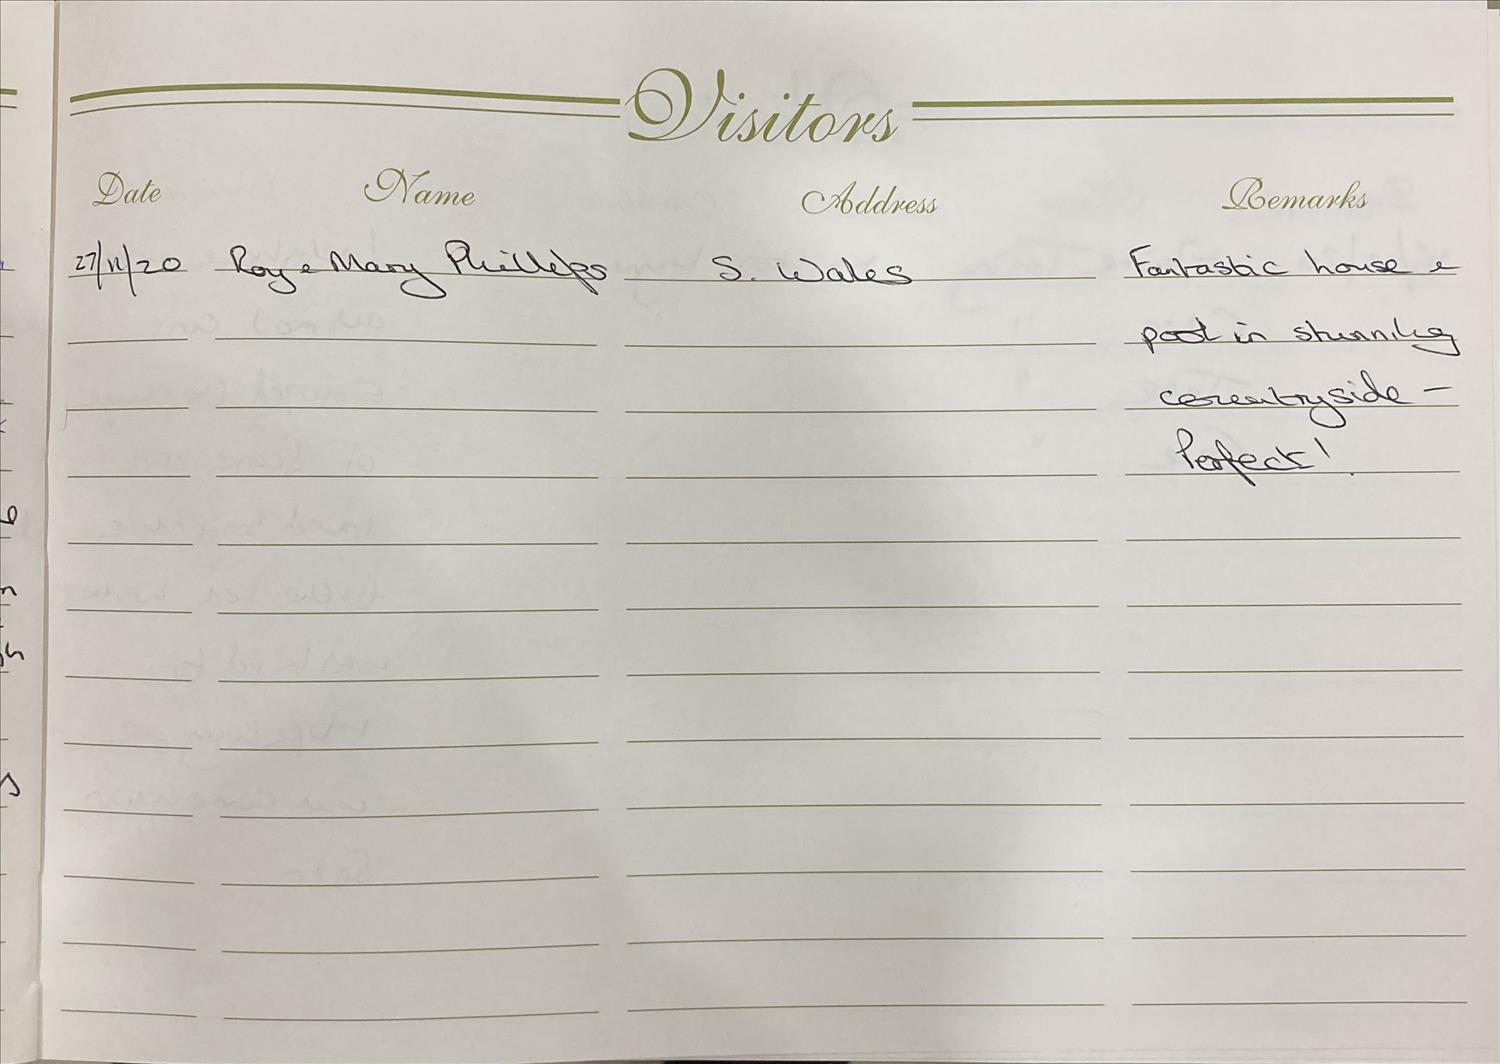 Visitors
Date Name Address Remarks
27/12/20 Roy & Mary Phillips S. Wales Fantastic house &
pool in stunning
countryside –
Perfect!